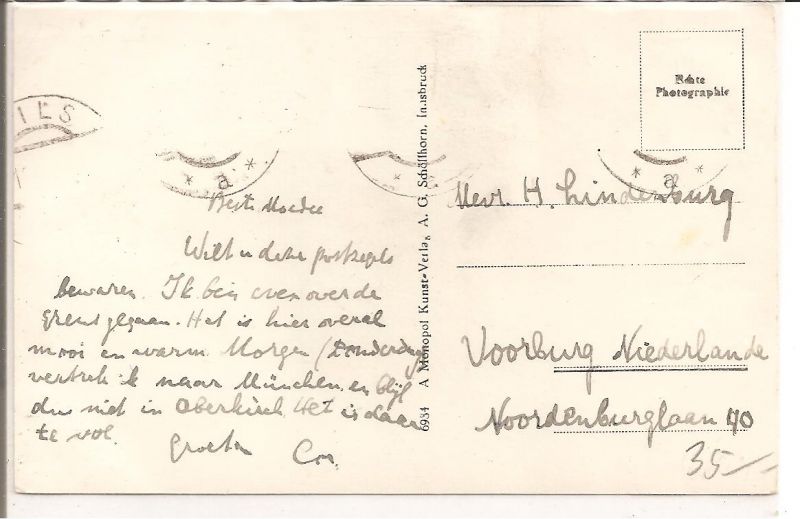 ILS
* a *
* a *
Echte
Photographie
6984 A Monopol Kunst-Verlag, A. G. Schöllhorn, Innsbruck
Beste Moeder
Wilt u deze postzegels
bewaren. Ik ben even over de
grens gegaan. Het is hier overal
mooi en warm Morgen (Donderdag
vertrek ik naar München en blijf
dus niet in Oberkirch Het is daar
te vol.
Groeten Cor.
Mevr. H. Lindenburg
Voorburg Niederlande
Noordenburglaan 40
35-